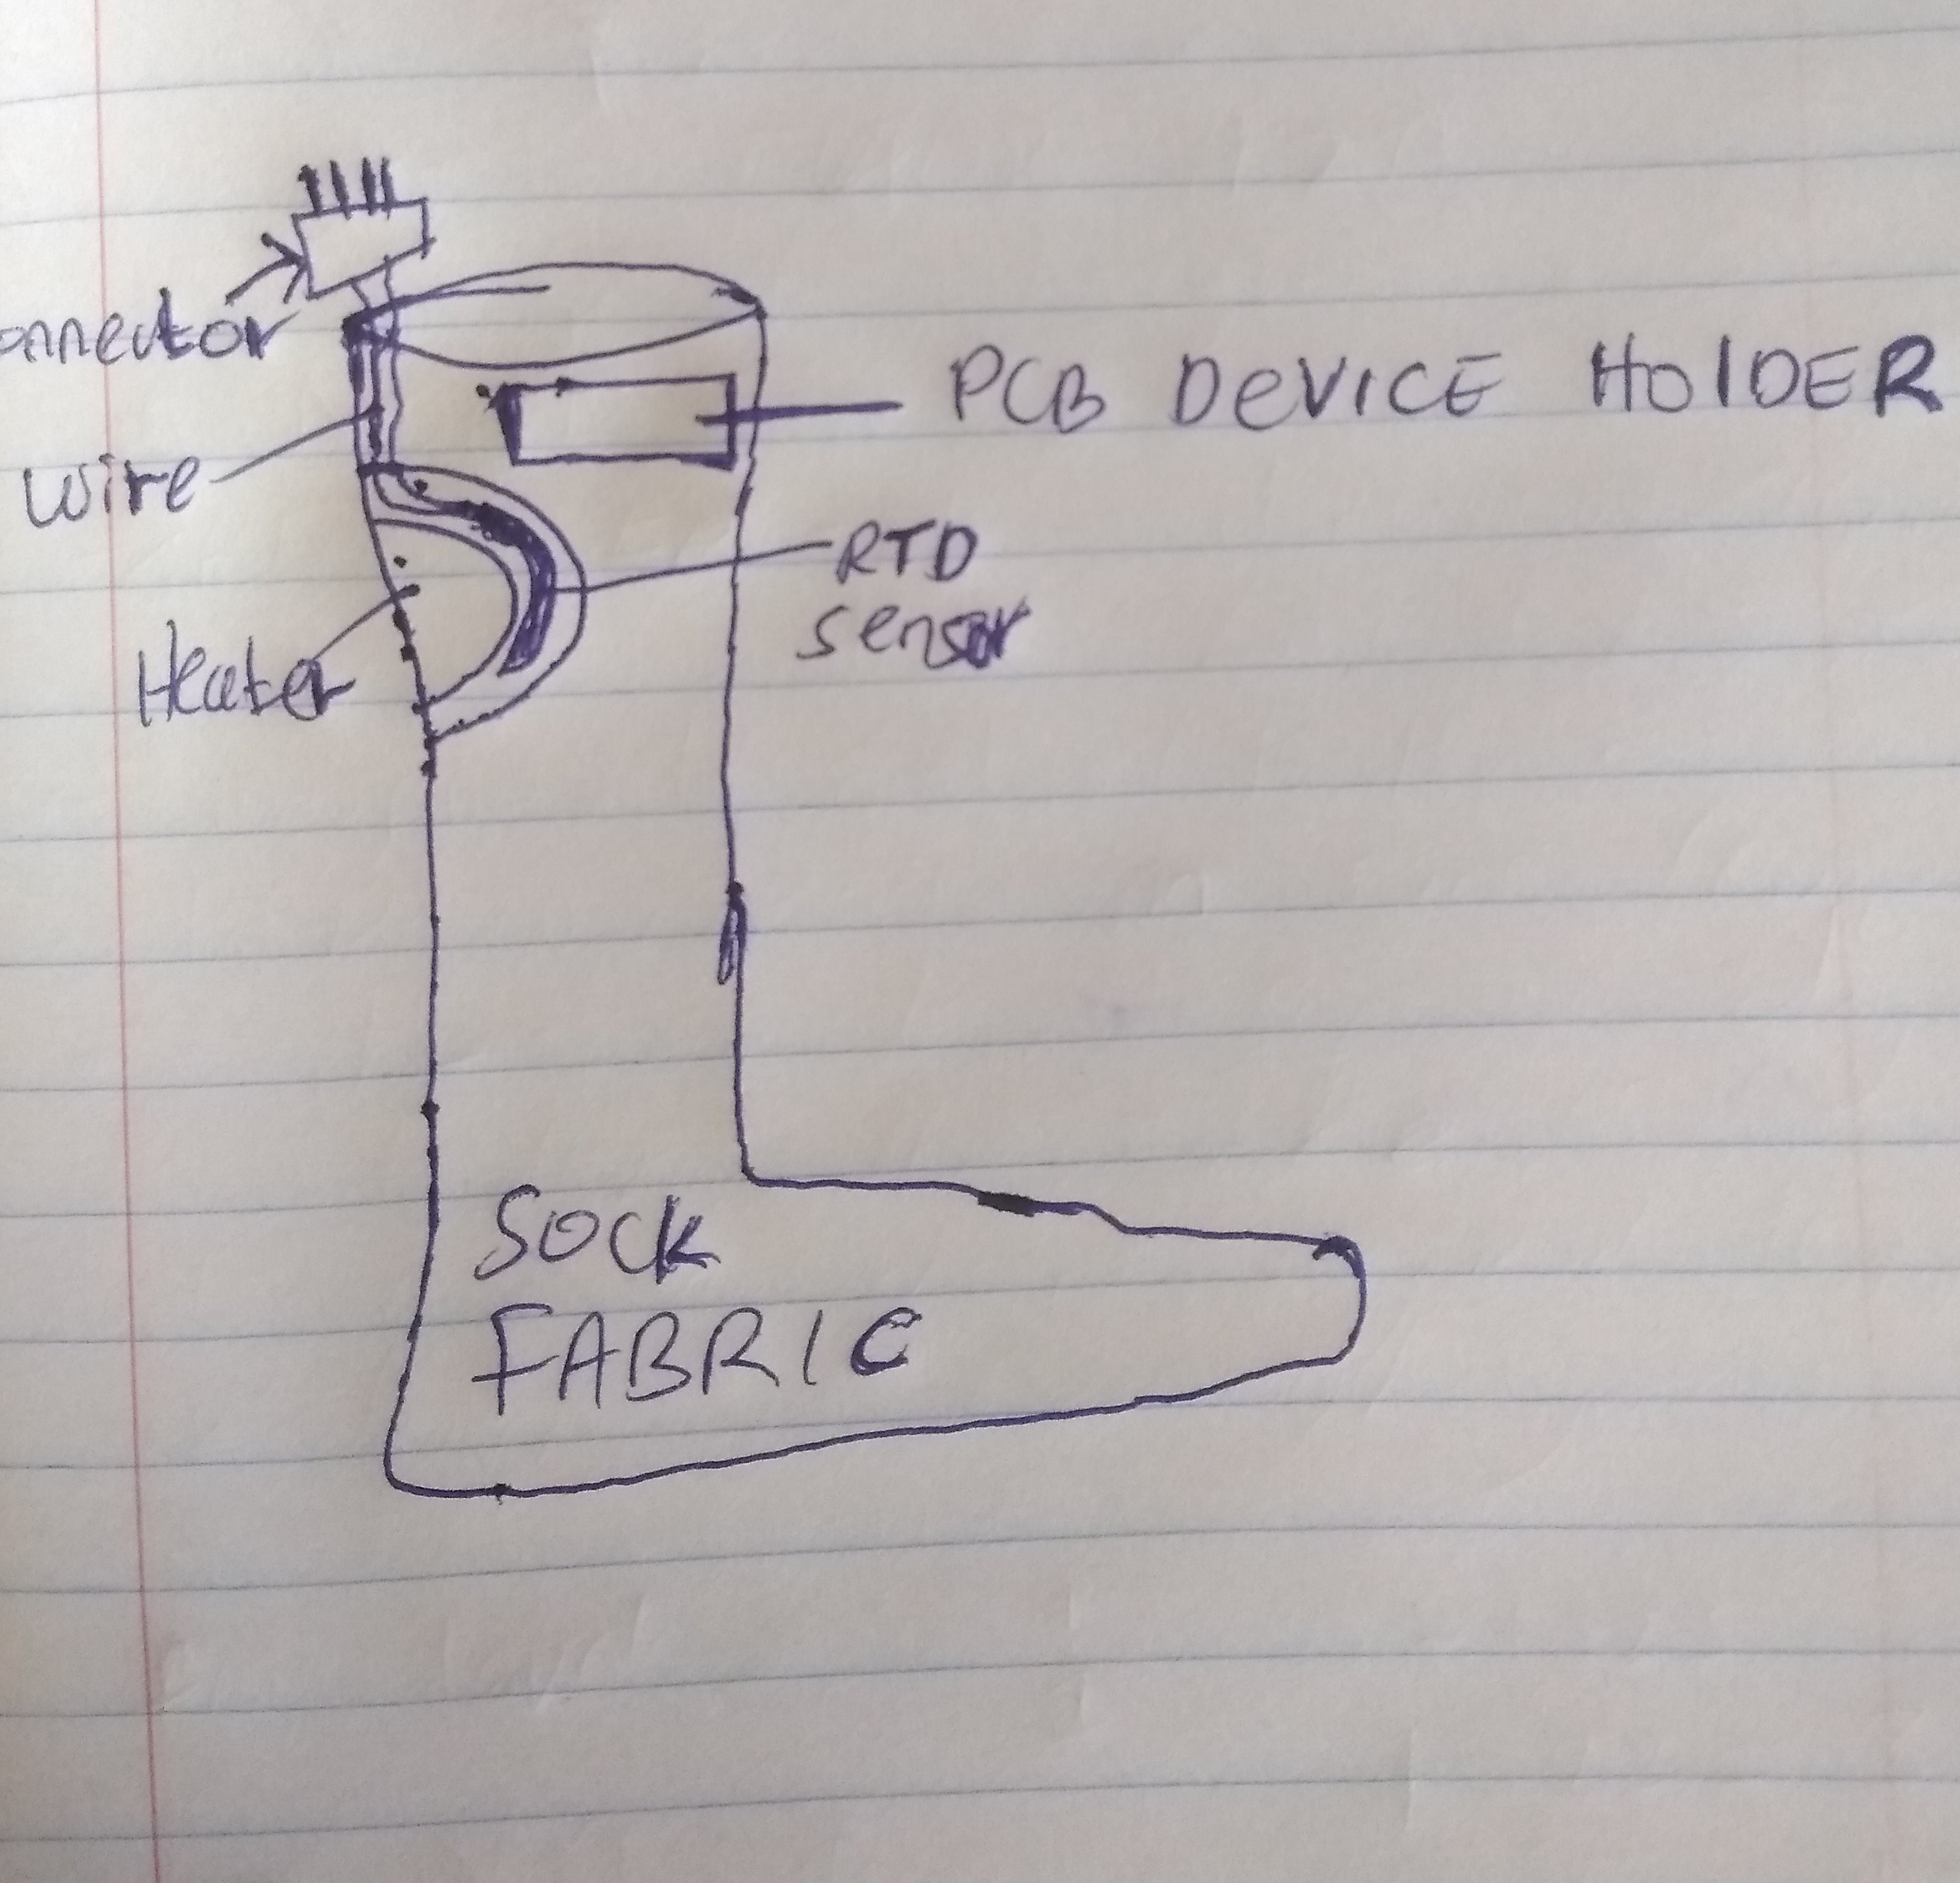 onnector
PCB DEVICE HOlDER
wire
RTD
sensor
Heater
SOCK
FABRIC